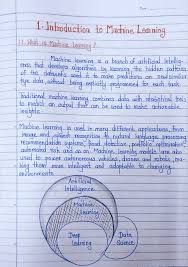 1. Introduction to Machine Learning
1.1. What is Machine Learning?
Machine learning is a branch of artificial intellig-
ence that develops algorithms by learning the hidden patterns
of the datasets used it to make predictions on new similar
type data, without being explicitly programmed for each task.
Traditional machine learning combines data with statistical tools
to predict an output that can be used to make actionable
insights.
Machine learning is used in many different applications, from
image and speech recognition to natural language processing,
recommendation systems, fraud detection, portfolio optimization,
automated task and so on. Machine learning models are also
used to power autonomous vehicles, drones and robots, making
them more intelligent and adaptable to changing
environments.
Artificial
Intelligence
Machine
Learning
Deep
Learning
Data
Science